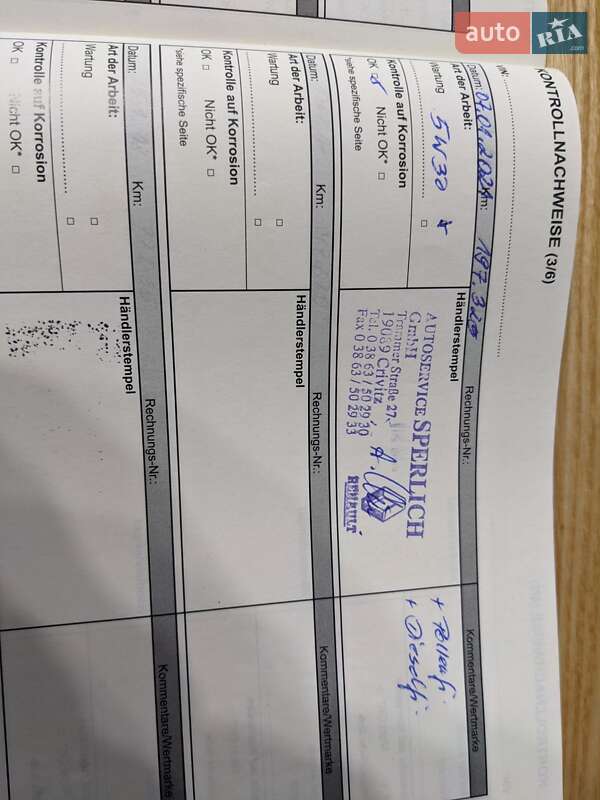 auto RIA.com
KONTROLLNACHWEISE (3/6)
VIN:
Datum: Km: 197.3
Rechnungs-Nr.:
Kommentare/Wertmarke
Art der Arbeit:
Händlerstempel
Wartung 5W30
Kontrolle auf Korrosion
OK Nicht OK*
*siehe spezifische Seite
AUTOSERVICE SPERLICH
GmbH
Trammer Straße 27
19089 Crivitz
Tel. 0 38 63 / 50 29 30
Fax 0 38 63 / 50 29 33
RENAULT
+ Pollenfi.
+ Dieselfi.
Datum: Km:
Rechnungs-Nr.:
Kommentare/Wertmarke
Art der Arbeit:
Händlerstempel
Wartung
Kontrolle auf Korrosion
OK Nicht OK*
*siehe spezifische Seite
Datum: Km:
Rechnungs-Nr.:
Kommentare/Wertmarke
Art der Arbeit:
Händlerstempel
Wartung
Kontrolle auf Korrosion
OK Nicht OK*